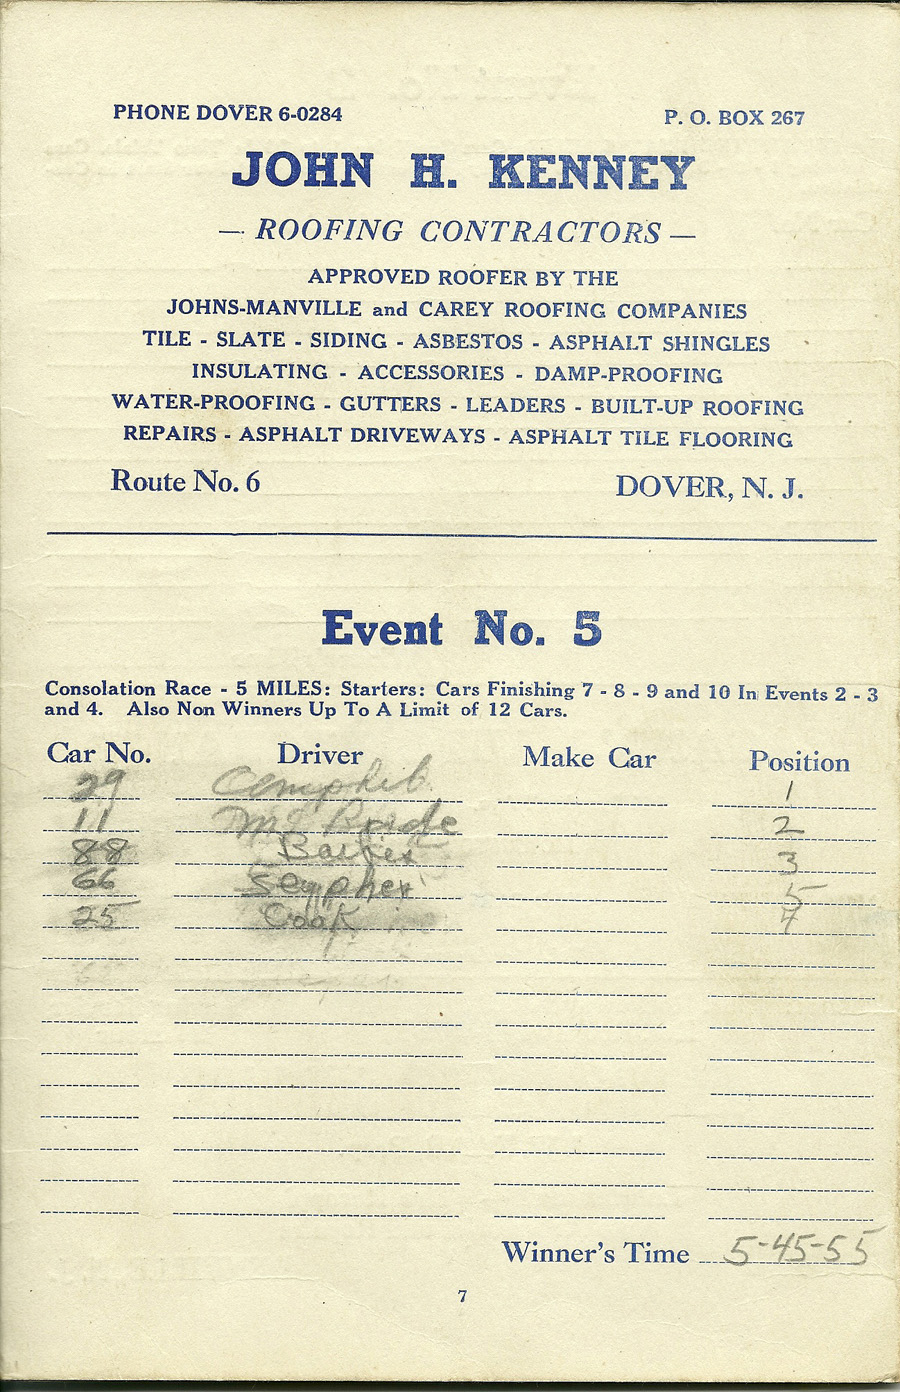 PHONE DOVER 6-0284 P. O. BOX 267
JOHN H. KENNEY
— ROOFING CONTRACTORS —
APPROVED ROOFER BY THE
JOHNS-MANVILLE and CAREY ROOFING COMPANIES
TILE - SLATE - SIDING - ASBESTOS - ASPHALT SHINGLES
INSULATING - ACCESSORIES - DAMP-PROOFING
WATER-PROOFING - GUTTERS - LEADERS - BUILT-UP ROOFING
REPAIRS - ASPHALT DRIVEWAYS - ASPHALT TILE FLOORING
Route No. 6 DOVER, N. J.
Event No. 5
Consolation Race - 5 MILES: Starters: Cars Finishing 7 - 8 - 9 and 10 In Events 2 - 3
and 4. Also Non Winners Up To A Limit of 12 Cars.
Car No. Driver Make Car Position
29 1
11 2
88 3
66 5
25 Cook 4
Winner's Time 5-45-55
7